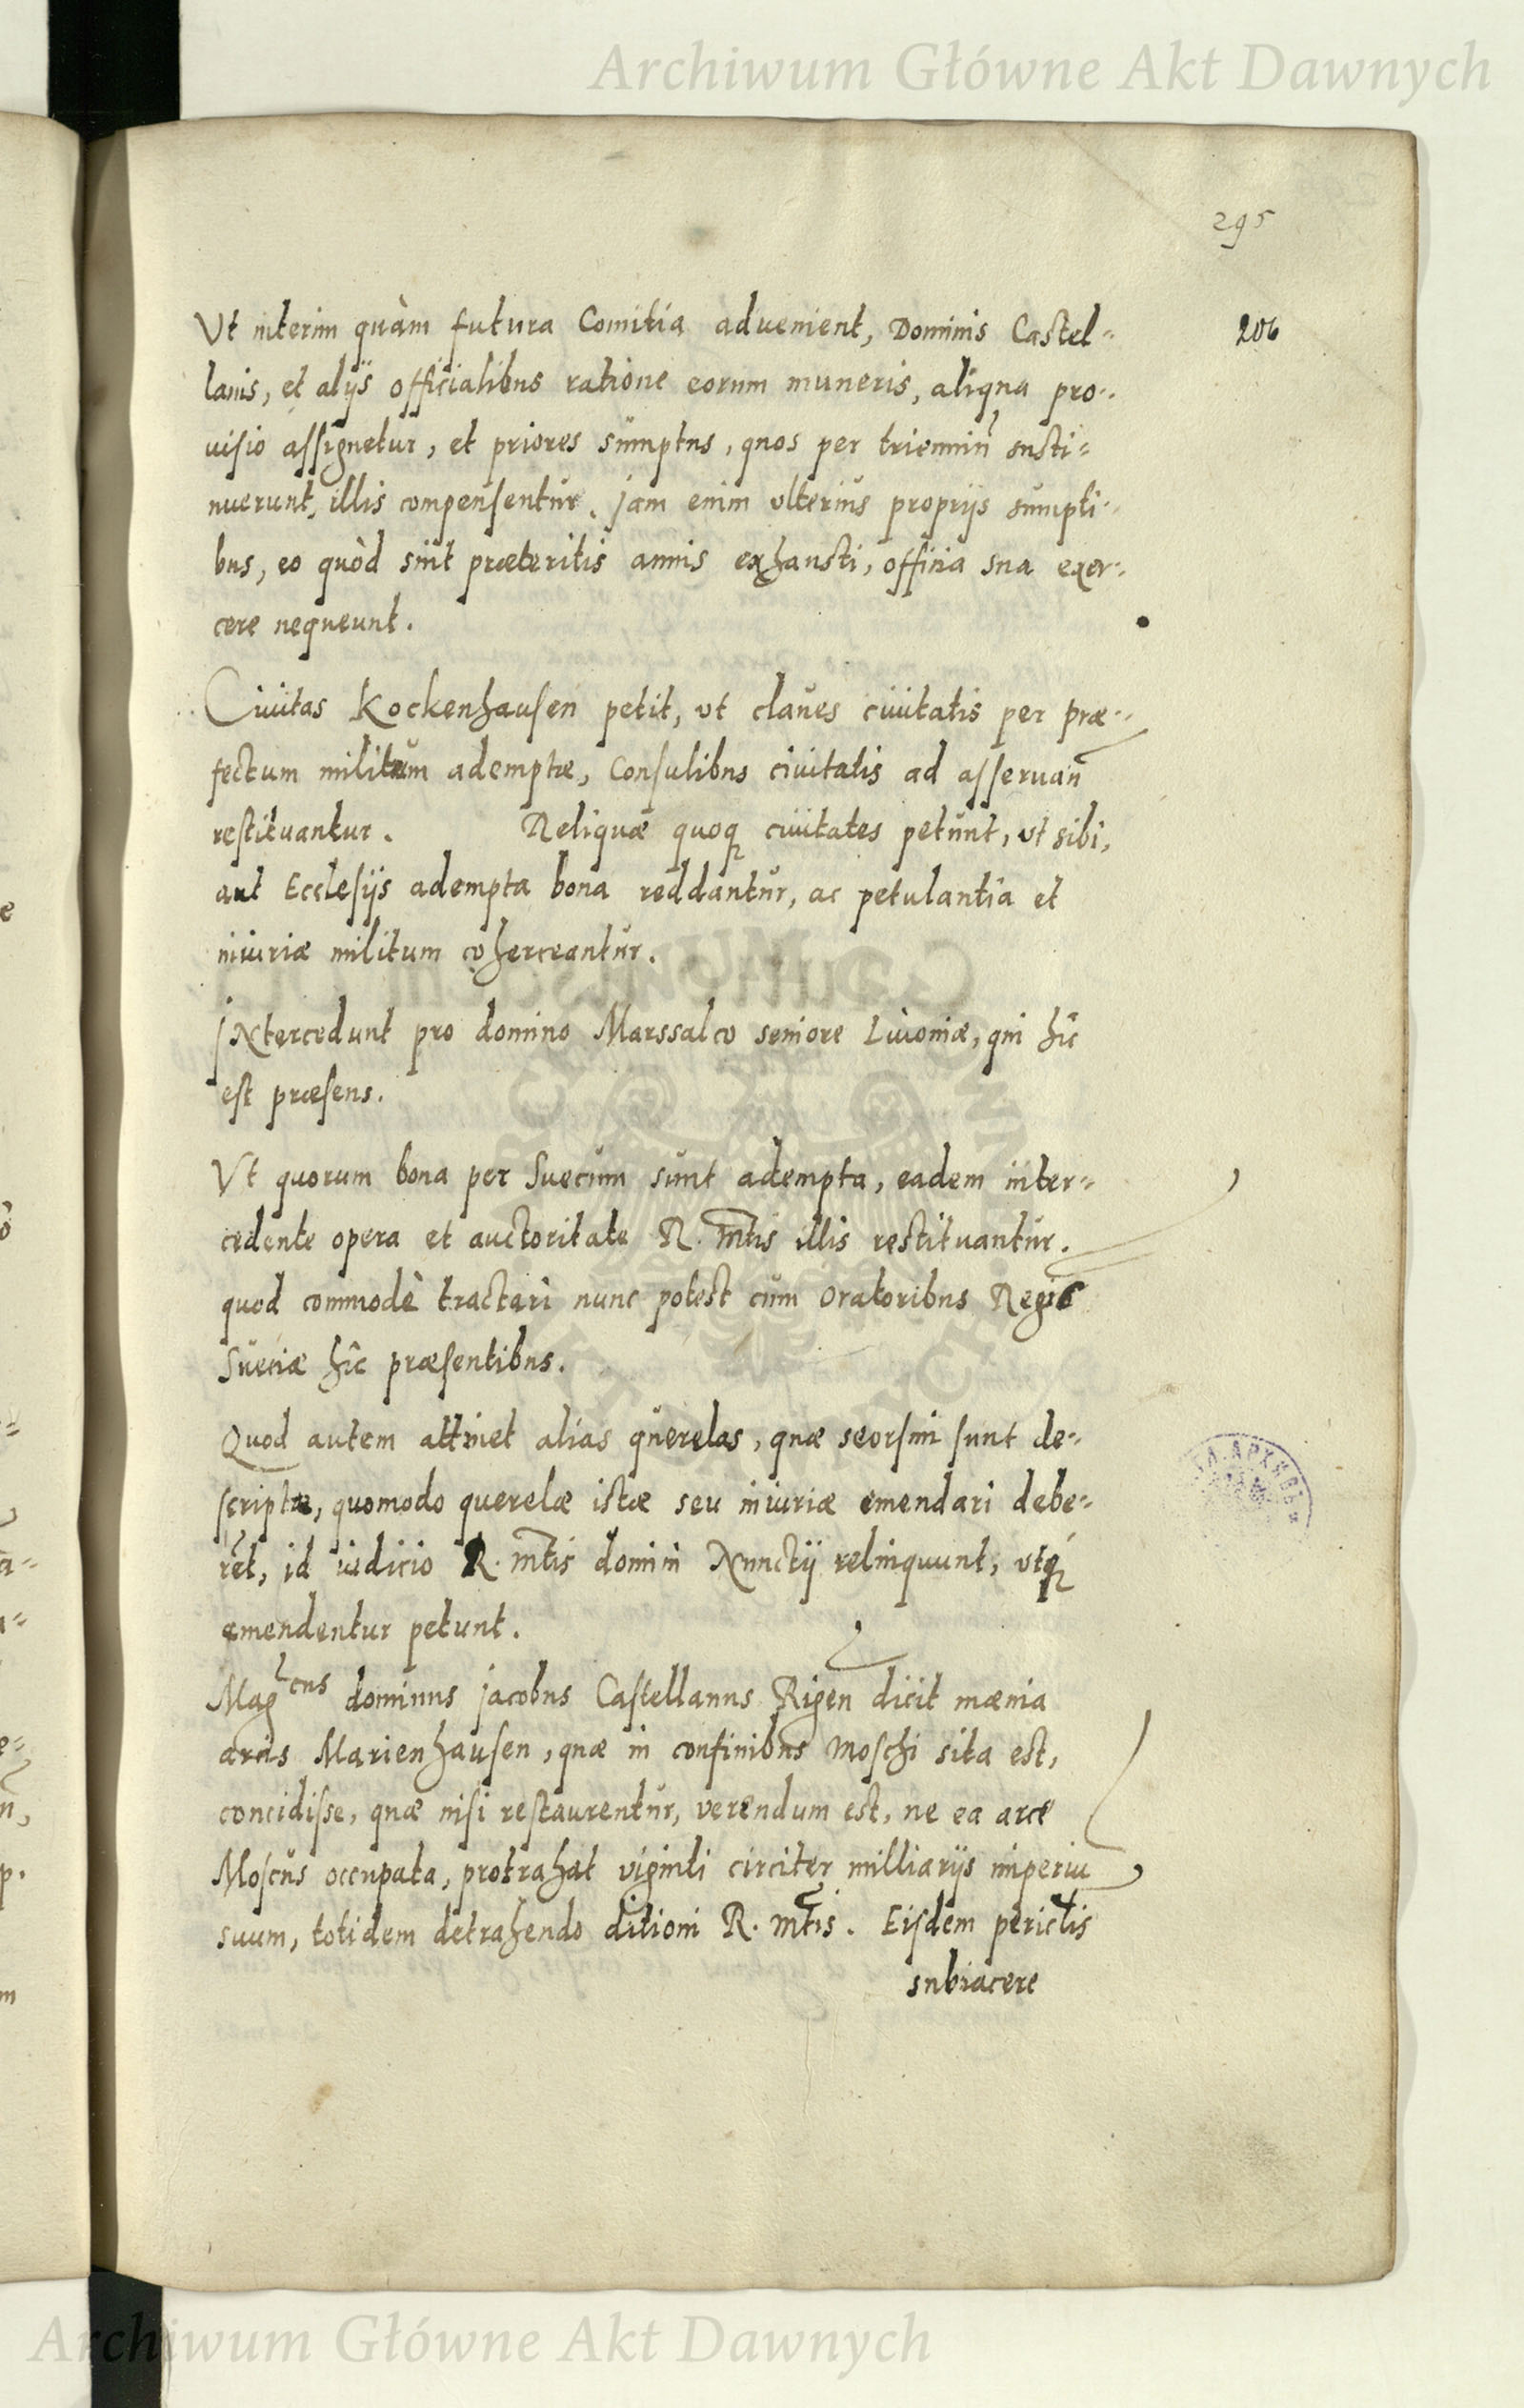 Archiwum Główne Akt Dawnych
295
206
Vt interim quàm futura Comitia aduenient, Dominis Castel-
lanis, et alijs officialibus ratione eorum muneris, aliqua pro-
uisio assignetur, et priores sumptus, quos per trienniũ susti-
nuerunt, illis compensentur. Jam enim vlterius proprijs sumpti-
bus, eo quòd sint præteritis annis exhausti, officia sua exer-
cere nequeunt.
Ciuitas Kockenhausen petit, vt claues ciuitatis per præ-
fectum militum ademptæ, Consulibus ciuitatis ad asseruan̄
restituantur. Reliquæ quoq ciuitates petunt, vt sibi,
aut Ecclesijs adempta bona reddantur, ac petulantia et
iniuriæ militum coherceantur.
JNtercedunt pro domino Marssalco seniore Liuoniæ, qui hîc
est præsens.
Vt quorum bona per Suecum sunt adempta, eadem inter-
cedente opera et auctoritate R. mtis illis restituantur.
quod commodè tractari nunc potest cum Oratoribus Regis
Sueciæ hîc præsentibus.
Quod autem attinet alias querelas, quæ seorsim sunt de-
scriptæ, quomodo querelæ istæ seu iniuriæ emendari debe-
rēt, id iudicio R. mtis domini Nunctij relinquunt, vtq
emendentur petunt.
Magcus dominus Jacobus Castellanus Rigen dicit mænia
arcis Marienhausen, quæ in confinibus Moschi sita est,
concidisse, quæ nisi restaurentur, verendum est, ne ea arce
Moscus occupata, protrahat viginti circiter milliarijs imperiu
suum, totidem detrahendo ditioni R. mtis. Eisdem perictis
subiacere
Archiwum Główne Akt Dawnych